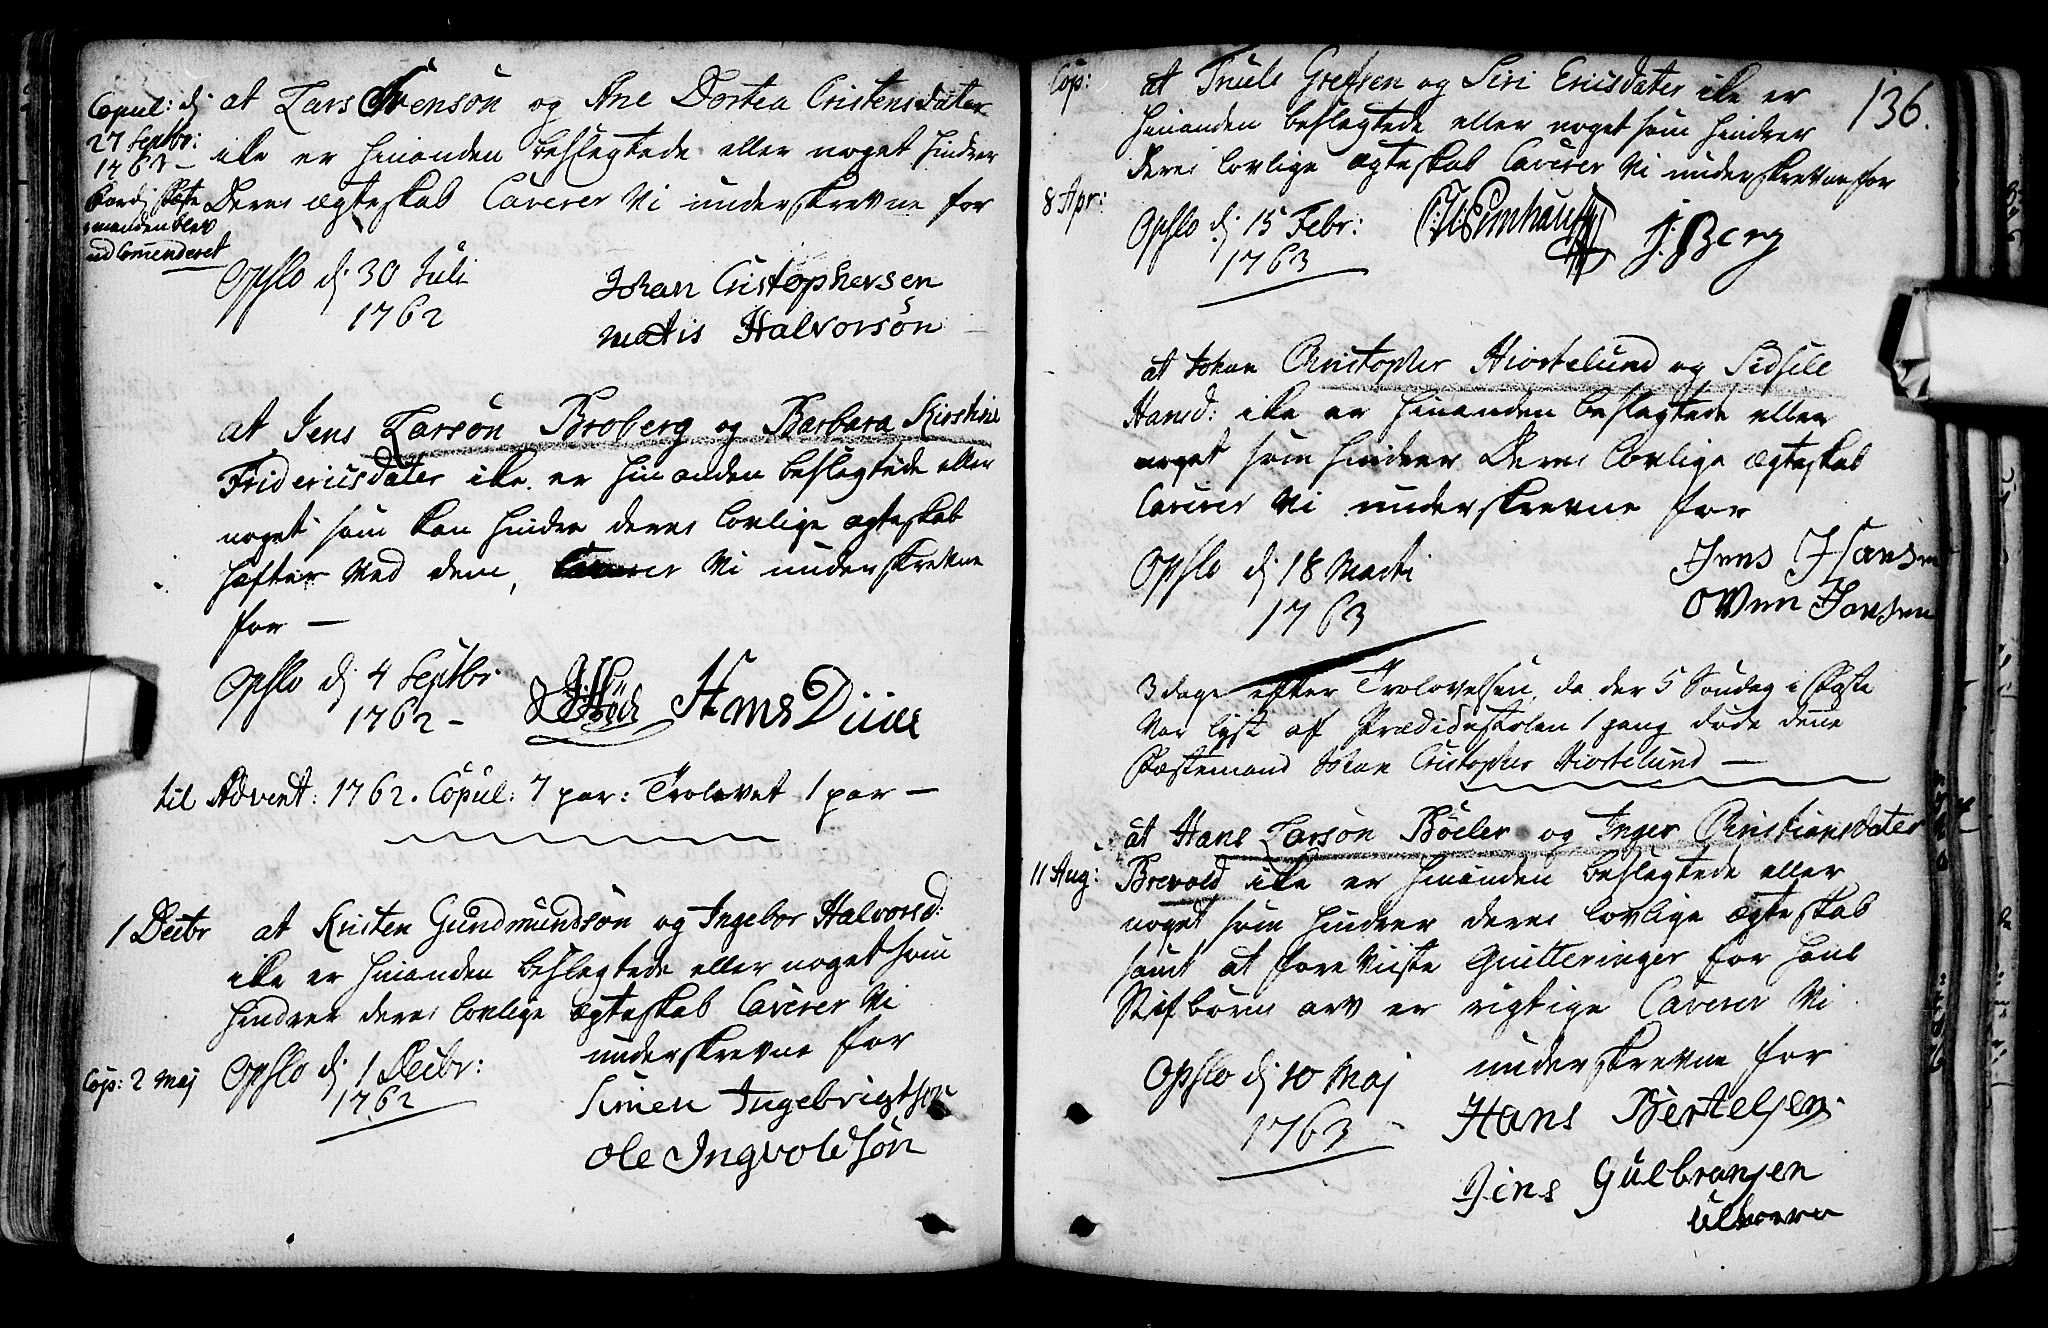 Copul: dj
27 Septbr:
1763 –
manden blev
ud Comenderet
at Lars Svensøn og Ane Dortea Cristensdater
ike er hinanden beslegtede eller noget hindrer
Deres ægteskab Caverer Vi underskrevne for
Opslo dj 30 Juli
1762
Johan Cristophersen
matis Halvorsøn
at Jens Larsøn Broberg og Barbara Kirstine
Fridericsdater ike er hinanden beslegtede eller
noget som kan hindre deres lovlige ægteskab
hæfter Ved dem, Caverer Vi underskrevne
for –
Opslo dj 4 Septbr
1762 –
Hans Diiue
til Advent: 1762. Copul: 7 par: Trolovet 1 par –
1 Decbr
at Kristen Gundmundsøn og Ingebor Halvorsd:
ike er hinanden beslegtede eller noget som
hindrer deres lovlige ægteskab Caverer Vi
underskrevne for
Cop: 2 Maj
Opslo dj 1 Decbr:
1762
Simen Ingebrigtsøn
Ole Ingvoldsøn
136.
Cop:
8 Apr:
at Truels Grefsen og Siri Ericsdater ike er
hinanden beslegtede eller noget som hindrer
deres lovlige ægteskab Caverer Vi underskrevne for
Opslo dj 15 Febr:
1763
J: Berg
at Johan Christopher Hiortelund og Sidsele
Hansd: ike er hinanden beslegtede eller
noget som hindrer Deres lovlige ægteskab
Caverer Vi underskrevne for
Opslo dj 18 Marti
1763
Jens Hansen
Owen Jansen
3 dage efter Trolovelsen, da der 5 Søndag i Faste
Var lyst af Prædikestolen 1 gang døde denne
Fæstemand Johan Cristopher Hiortelund –
11 Aug:
at Hans Larsøn Bøeler og Inger Christiansdater
Brevold ike er hinanden beslegtede eller
noget som hindrer deres lovlige ægteskab
samt at foreViiste Quitteringer for hans
Stifbørns arv er rigtige Caverer Vi
underskrevne for
Opslo dj 10 Maj
1763
Hans Bertelsen
Jens Gulbransen
Ulvøen